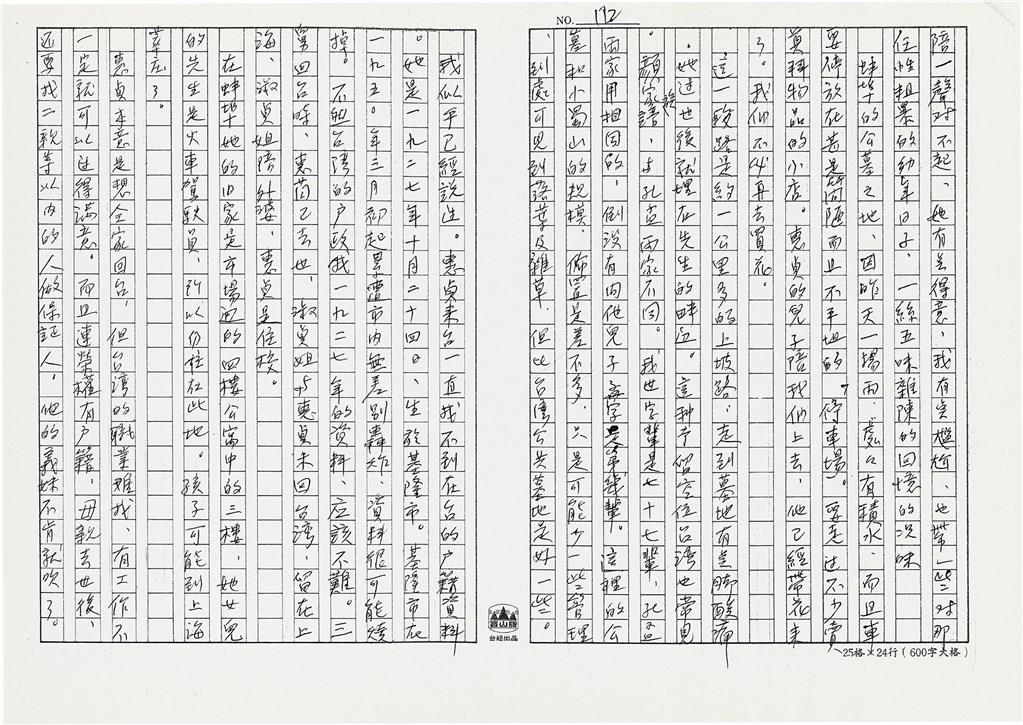 NO. 192
陪一聲对不起、她有些得意、我有些尷尬、也帶一些对那
任性粗暴的幼年日子、一絲五味雜陳的回憶的況味
蚌埠的公墓之地、因昨天一場雨、處處有積水、而且車
要停放在若是簡陋而且不平坦的「停車場。要走过不少賣
奠拜物品的小店。惠貞的兒子陪我们上去、他已經帶花来
了。我们不必再去買花。
這一段路是約一公里多的上坡路、走到墓地有些腳酸痛
。她过世後就埋在先生的畔边。這种予留空位台湾也常見
。顏家族譜、与孔孟兩家不同。我世字輩是七十七輩、孔孟
兩家用相同的、倒沒有问他兒子 字是第幾輩。這裡的公
墓和小蜀山的規模、佈置是差不多、只是可能少一些管理
、到處可見到落葉及雜草、但比台湾公共墓地是好一些。
我似乎已經說过。惠貞来台一直找不到在台的户籍資料
。她是一九二七年十月二十四日、生於基隆市。基隆市在
一九五○年三月初起累遭市内無差别轟炸、資料很可能燒
掉。不然台湾的户政找一九二七年的資料、应該不難。三
舅回台時、惠茵己去世、淑貞姐与惠貞未回台湾、留在上
海、淑貞姐陪外婆、惠貞是住校。
在蚌埠她的旧家是市場边的四樓公寓中的三樓、她女兒
的先生是火車駕駛員、所以仍住在此地。孩子可能到上海
業庄了。
惠貞本意是想全家回台、但台湾的職業难找、有工作不
一定就可以过得滿意。而且連榮權有户籍、母親去世後、
还要找二親等以内的人做保証人。他的義妹不肯就吹了。
寶山牌
台紙出品
25格×24行（600字大格）